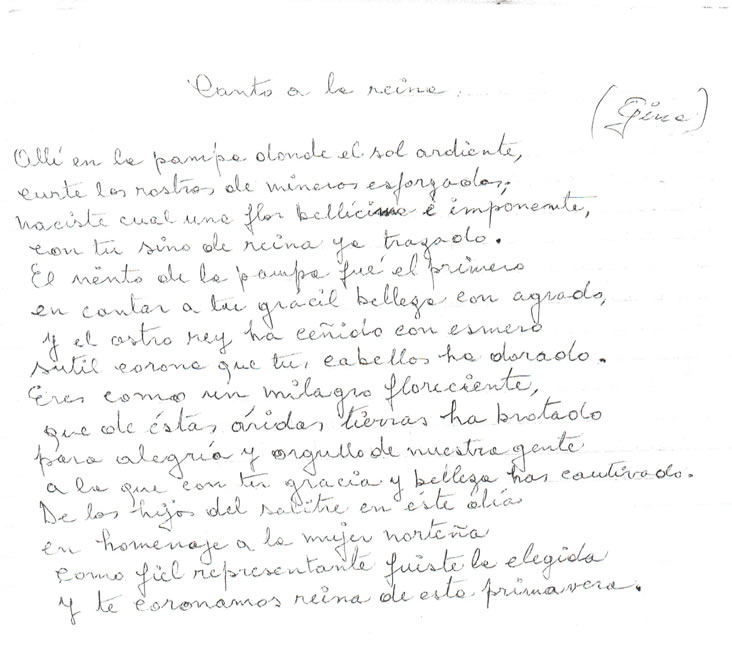 Canto a la reina.
(Gina)
Allí en la pampa donde el sol ardiente,
curte los rostros de mineros esforzados;
naciste cual una flor bellícima é imponente,
con tu sino de reina ya trazado.
El viento de la pampa fué el primero
en cantar a tu grácil belleza con agrado,
y el astro rey ha ceñido con esmero
sutil corona que tus cabellos ha dorado.
Eres como un milagro floreciente,
que de éstas áridas tierras ha brotado
para alegría y orgullo de nuestra gente
a la que con tu gracia y belleza has cautivado.
De los hijos del salitre en éste día
en homenaje a la mujer norteña
como fiel representante fuiste la elegida
y te coronamos reina de esta primavera.